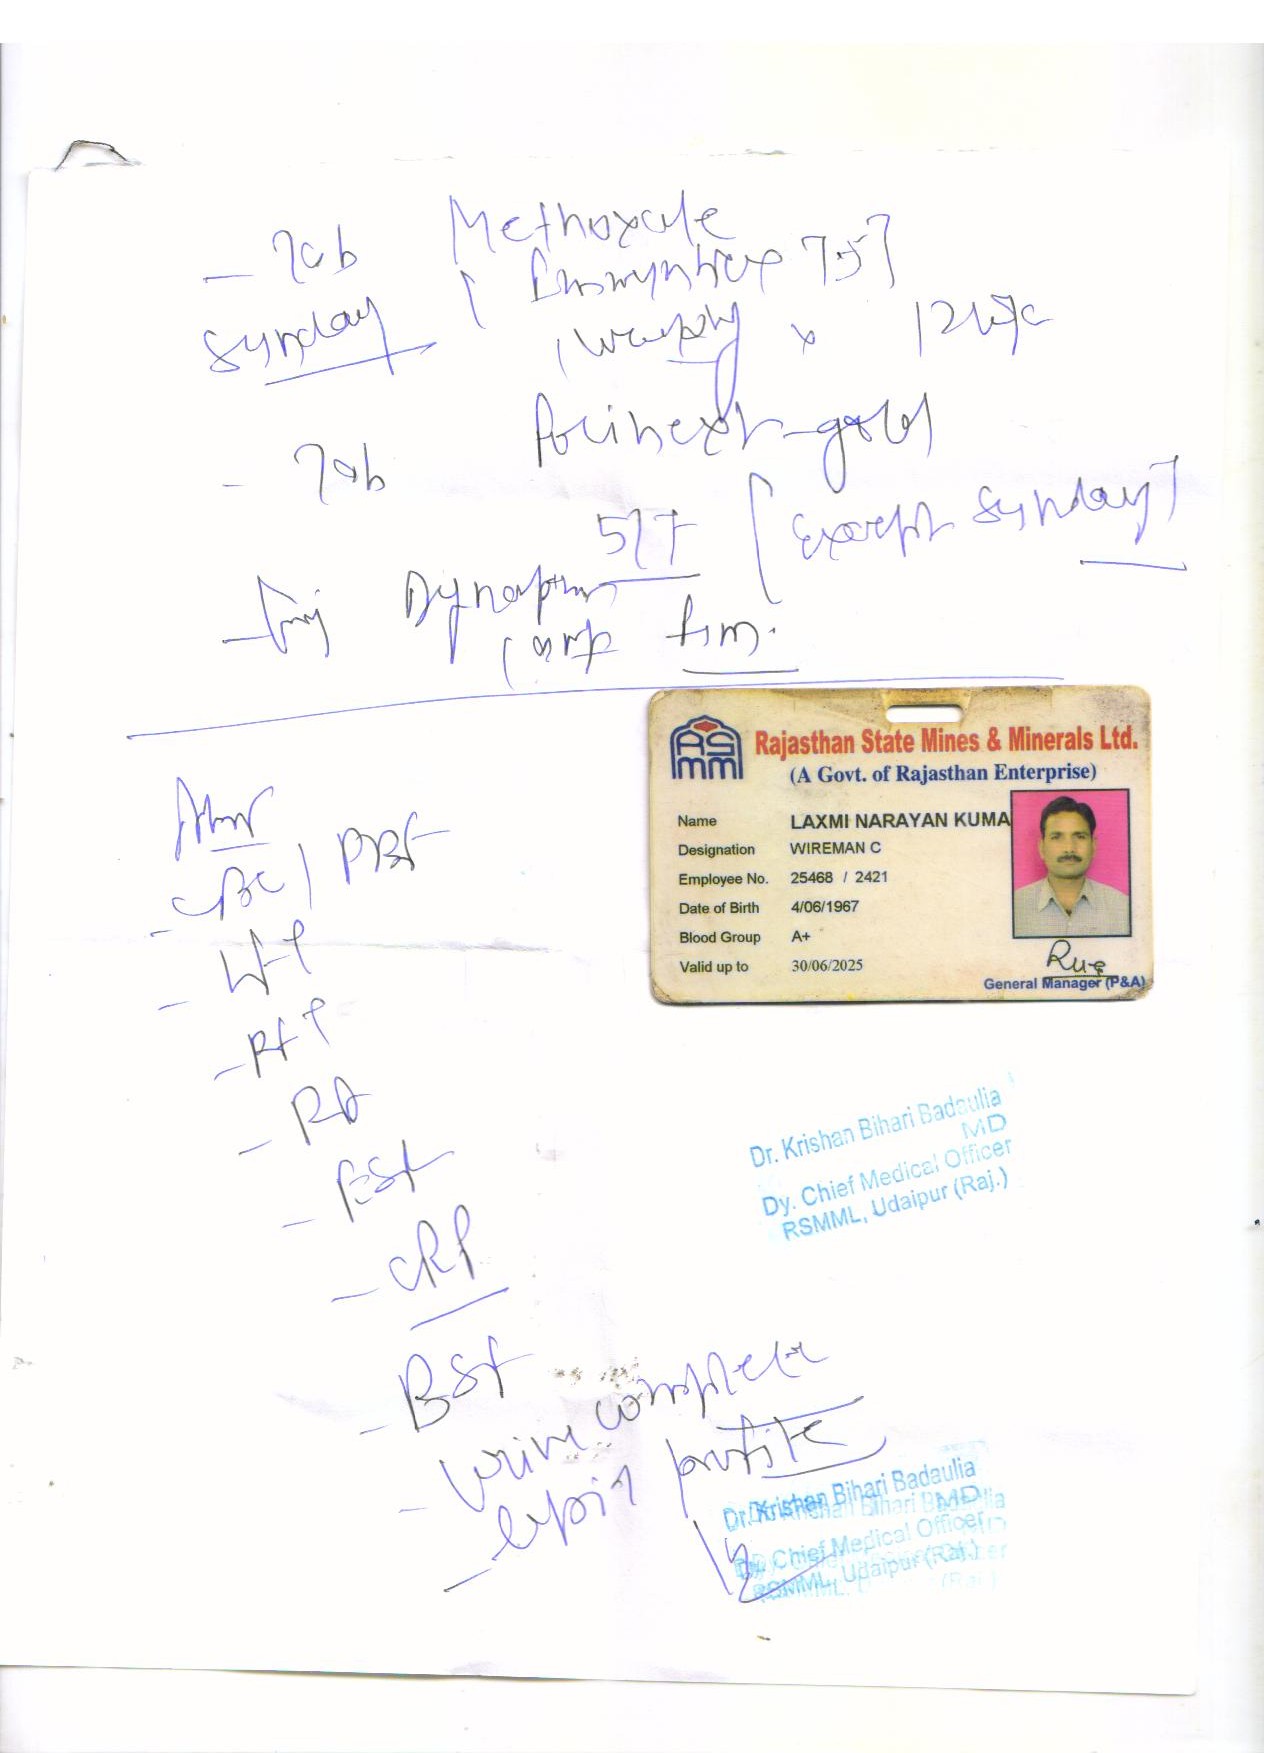 - Tab Methoxate
Sunday
7.5]
1 weekly x 12 wk
- Tab Folinext-gold
5/7 [Except Sunday]
- Inj Dynapar
1 amp Im.
Adv
CBC / PBF
- LFT
- RFT
- RA
- ESR
- CRP
- BSF
- Urine complete
- Lipid profile
RSMM
Rajasthan State Mines & Minerals Ltd.
(A Govt. of Rajasthan Enterprise)
Name LAXMI NARAYAN KUMA
Designation WIREMAN C
Employee No. 25468 / 2421
Date of Birth 4/06/1967
Blood Group A+
Valid up to 30/06/2025
General Manager (P&A)
Dr. Krishan Bihari Badaulia
MD
Dy. Chief Medical Officer
RSMML, Udaipur (Raj.)
Dr. Krishan Bihari Badaulia
MD
Dy. Chief Medical Officer
RSMML, Udaipur (Raj.)